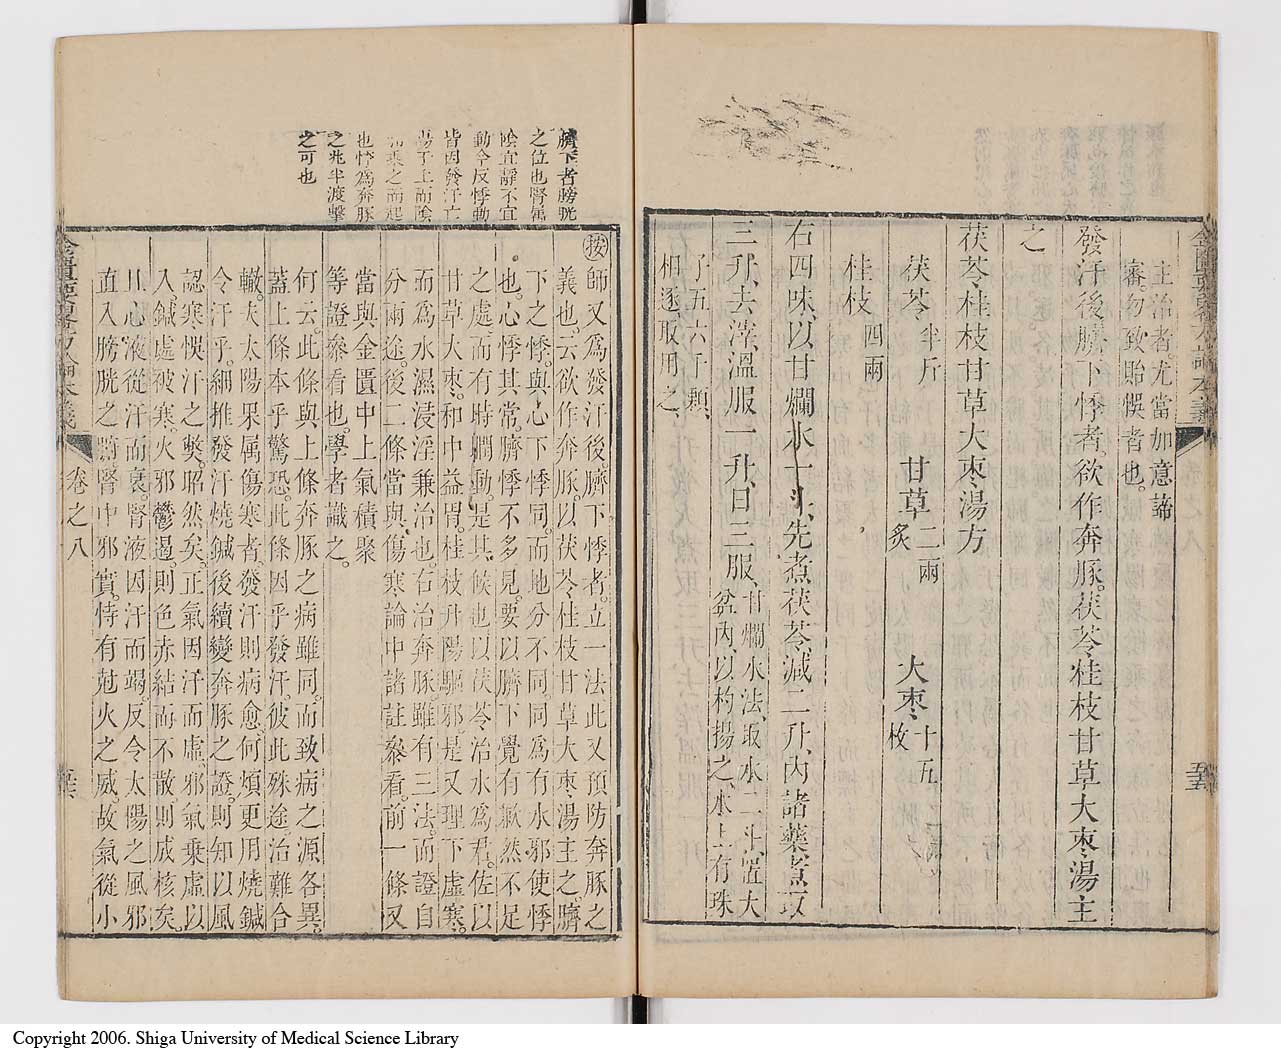 主治者。尤當加意諦
審。勿致貽悞者也。
發汗後臍下悸者。欲作奔豚。茯苓桂枝甘草大棗湯主
之
茯苓桂枝甘草大棗湯方
茯苓 半斤 甘草 二兩 炙 大棗 十五 枚
桂枝 四兩
右四味、以甘爛水一斗、先煮茯苓、減二升、内諸藥、煮取
三升、去滓、溫服一升、日三服、 甘爛水法、取水二斗置大
盆内、以杓揚之、水上有珠
子五六千顆、
相逐、取用之、
臍下者膀胱
之位也腎属
陰宜靜不宜
動今反悸動
皆因發汗亡
陽于上而陰
乘之而起
也悸爲奔豚
之兆半渡擊
之可也
按師又爲發汗後。臍下悸者。立一法此又預防奔豚之
義也。云欲作奔豚。以茯苓桂枝甘草大棗湯主之。臍
下之悸。與心下悸同。而地分不同。同爲有水邪使悸
也。心悸其常。臍悸不多見。要以臍下覺有歉然不足
之處。而有時瞤動。是其候也以茯苓治水爲君。佐以
甘草大棗。和中益胃。桂枝升陽驅邪。是又理下虛寒。
而爲水濕浸淫兼治也。右治奔豚。雖有三法。而證自
分兩途。後二條當與傷寒論中諸註叅看前一條又
當與金匱中上氣積聚
等證叅看也。學者識之。
何云。此條與上條奔豚之病雖同。而致病之源各異。
蓋上條本乎驚恐。此條因乎發汗。彼此殊途。治難合
轍。夫太陽果属傷寒者。發汗則病愈。何煩更用燒鍼
令汗乎。細推發汗燒鍼後續變奔豚之證。則知以風
認寒悞汗之獘。昭然矣。正氣因汗而虛。邪氣乗虛以
入。鍼處被寒。火邪鬱遏。則色赤結而不散。則成核矣。
且心液從汗而衰。腎液因汗而竭。反令太陽之風邪
直入膀胱之府。腎中邪實。恃有尅火之威。故氣從小
金匱要畧方論本義
卷之八